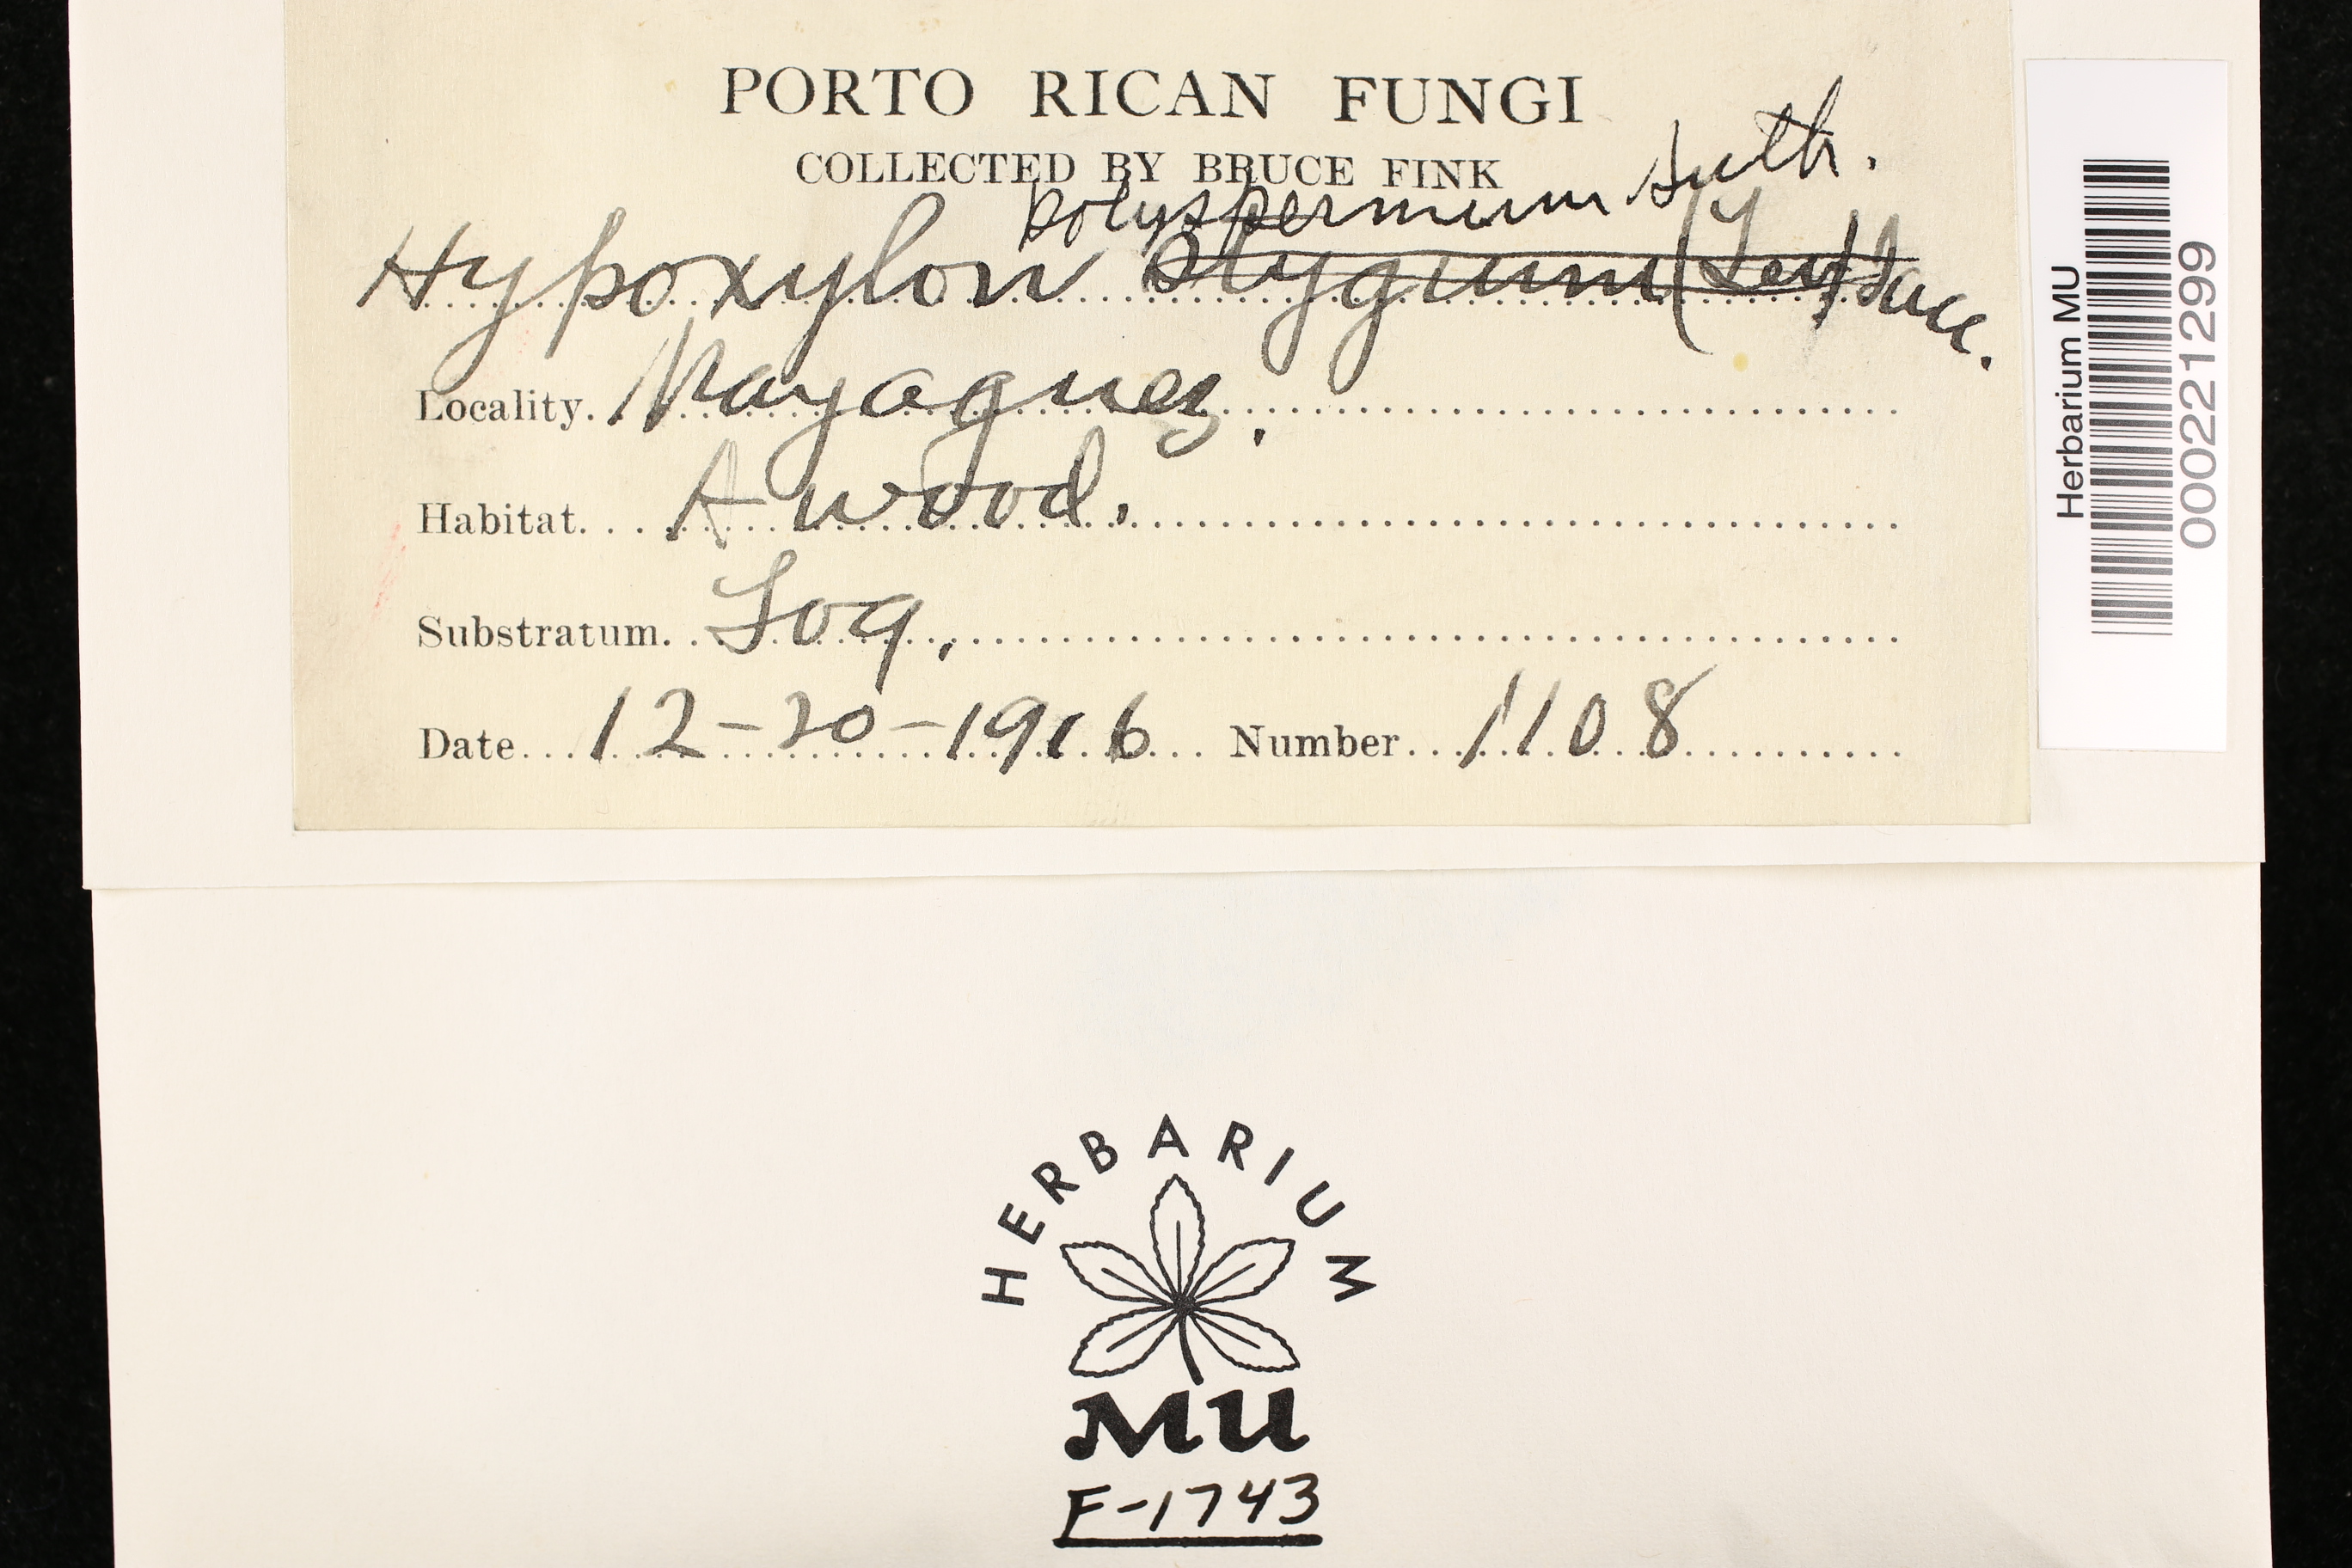 PORTO RICAN FUNGI
COLLECTED BY BRUCE FINK
polyspermum
Hypoxylon stygium (Lev) Sacc.
Locality. Mayaguez.
Habitat. A wood.
Substratum. Log.
Date 12-20-1916 Number 1108
Herbarium MU
000221299
HERBARIUM
MU
F-1743